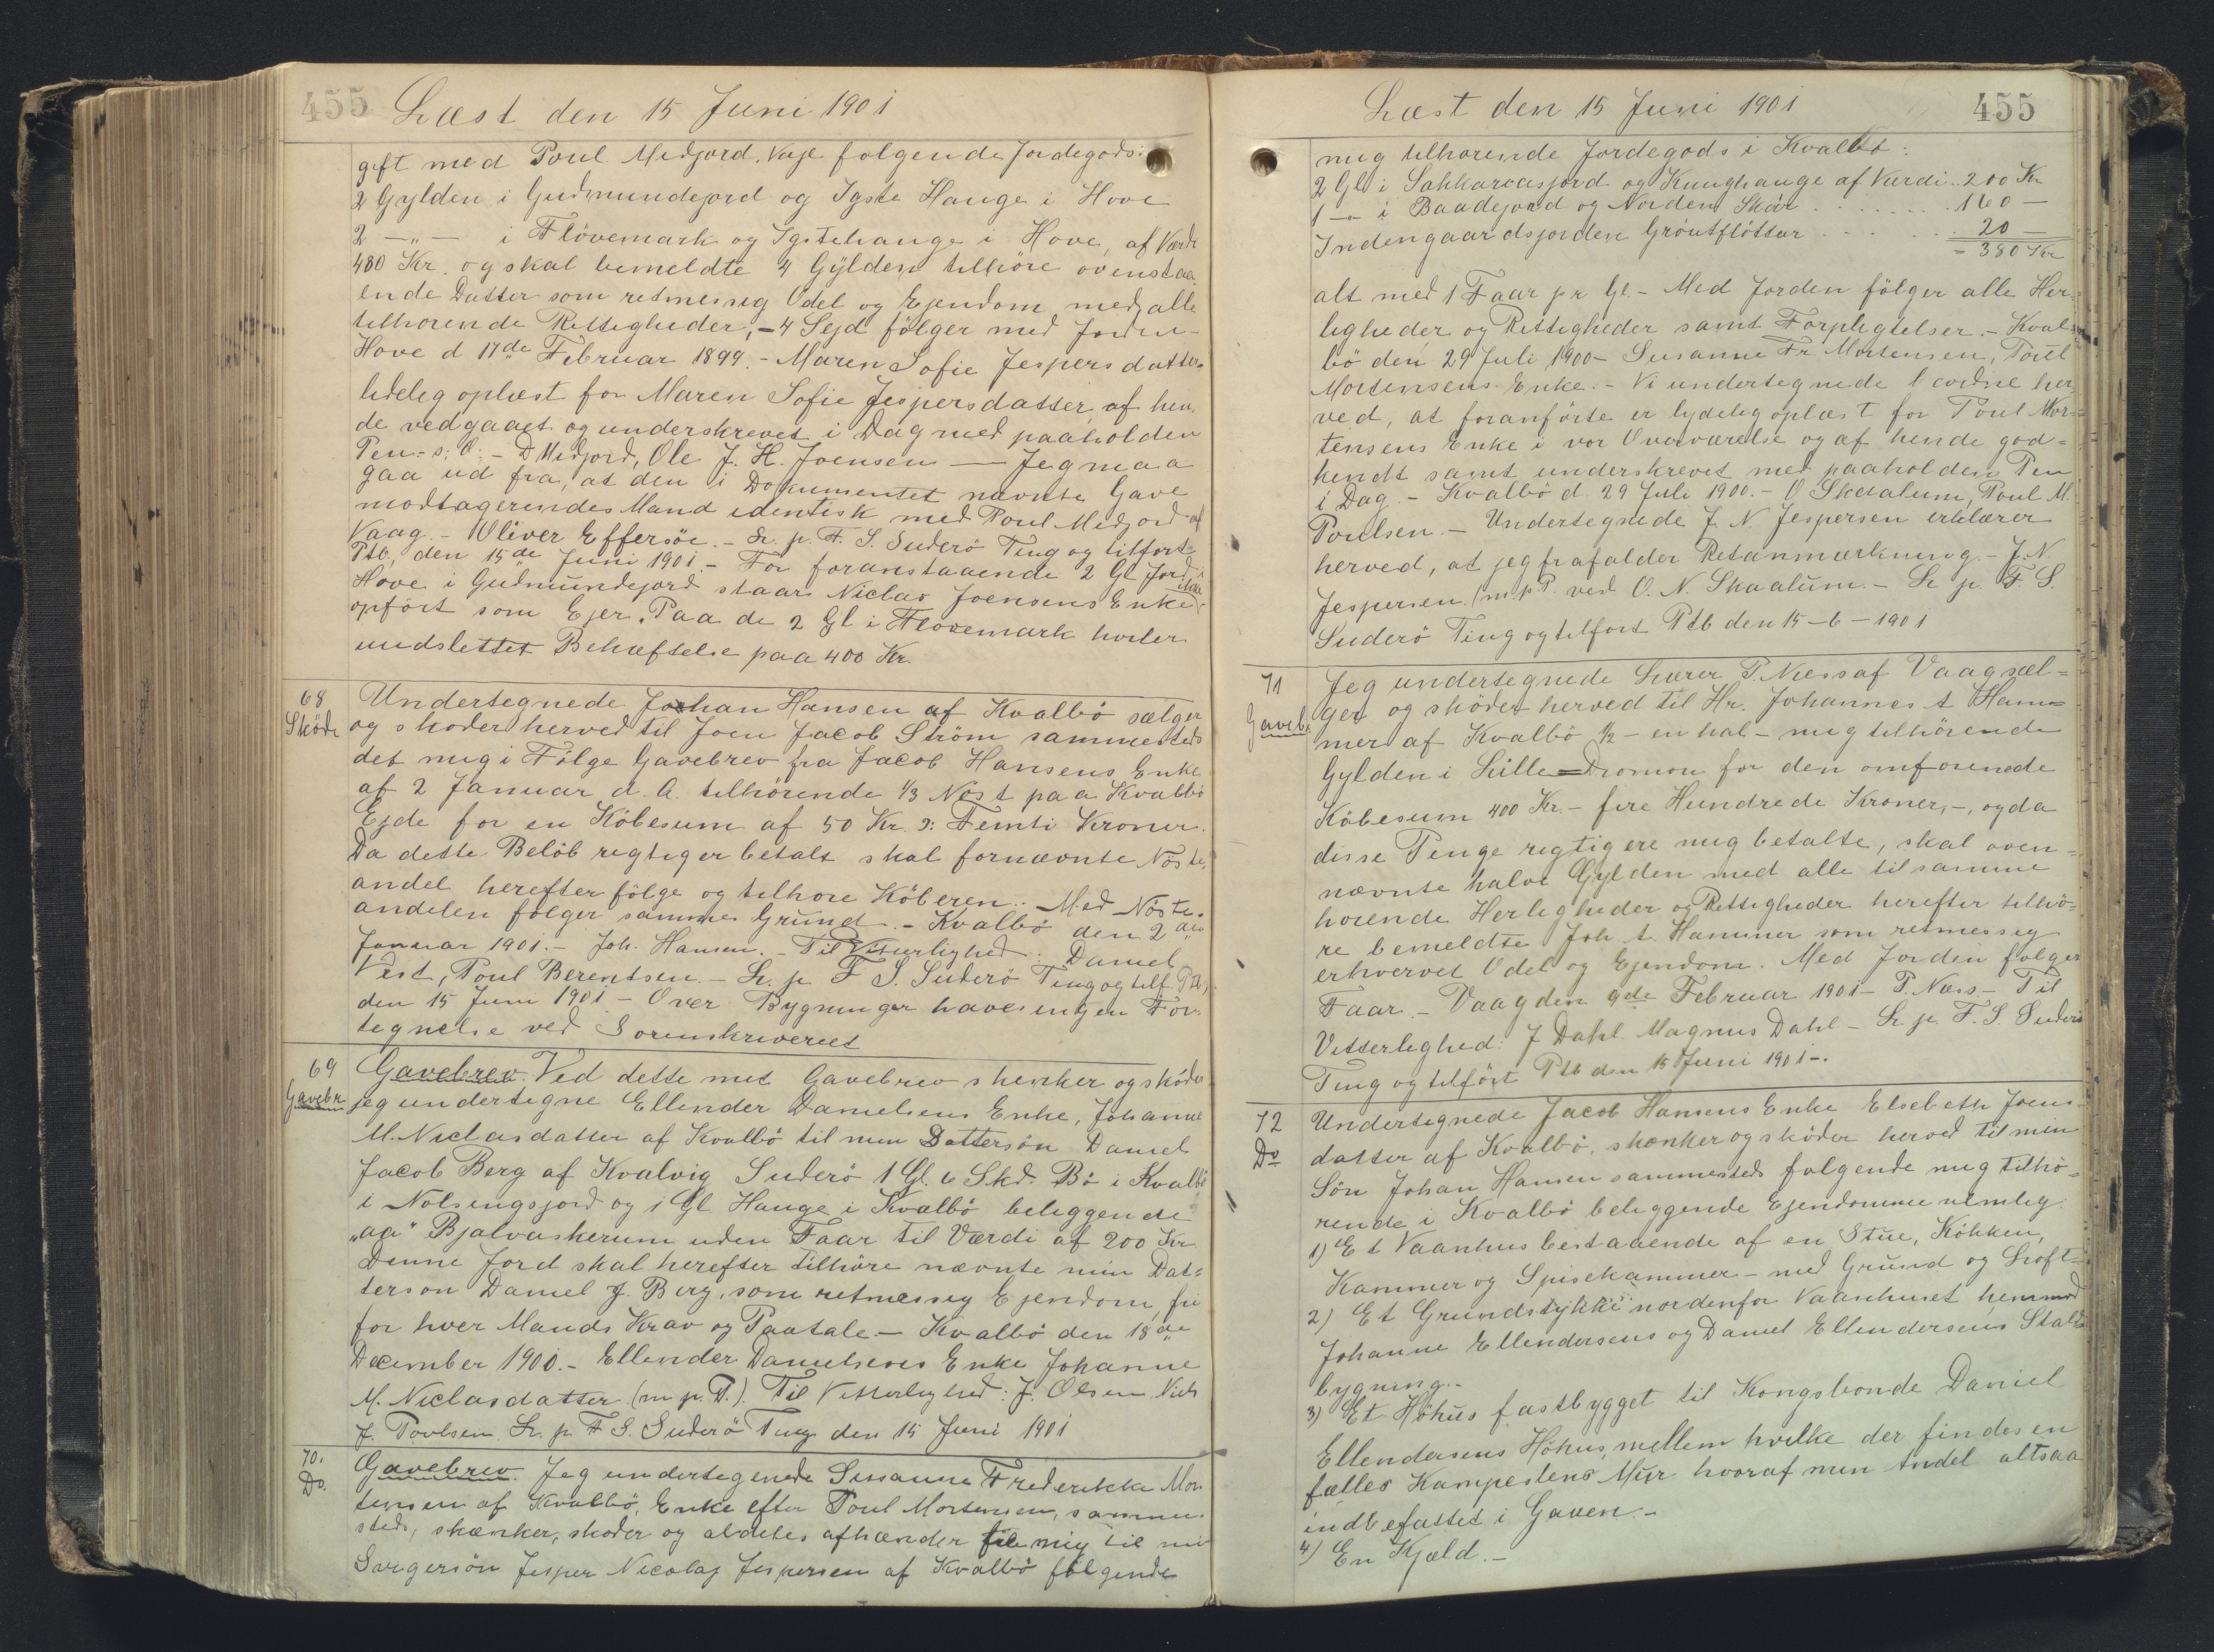 455 Læst den 15 Juni 1901
gift med Poul Midjord, Vaje følgende Jordegods:
2 Gylden i Gudmundejord og Ygste Hauge i Hove
2 —„— i Fløvemark og Ygstehauge i Hove, af Værdi
480 Kr. og skal bemeldte 4 Gylden tilhöre ovenstaa
ende Datter som retmessig Odel og Ejendom med alle
tilhorende Rettigheder, – 4 Sejd fölger med Jorden –
Hove d 17de Februar 1899. – Maren Sofie Jespersdatter
lideleg oplæst for Maren Sofie Jespersdatter, af hen,
de vedgaaet og underskrevet i Dag med paaholden
Pen. – s; O. – D Midjord, Ole J. H. Joensen — Jeg maa
gaa ud fra, at den i Dokumentet nævnte Gave
modtagerindes Mand identisk med Poul Midjord af
Vaag. – Oliver Effersöe. – Lr. p. F. S. Suderö Ting og tilfört
Ptb. den 15de Juni 1901. – For foranstaaende 2 Gl Jord i
Hove i Gudmundejord staar Niclas Joensens Enke
opfört som Ejer. Paa de 2 Gl i Flovemark hviler
uudslettet Behæftelse paa 400 Kr.
68 Undertegnede Johan Hansen af Kvalbö sælger
Sköde og skoder herved til Joen Jacob Ström sammesteds
det mig i Fölge Gavebrev fra Jacob Hansens Enke
af 2 Januar d. A. tilhörende 1/3 Nöst paa Kvalbö
Ejde for en Köbesum af 50 Kr. ɔ: Femti Kroner.
Da dette Belöb regtig er betalt skal fornævnte Nöste,
andel herefter fölge og tilhore Köberen. – Med Nöste,
andelen fölger samme Grund. – Kvalbö den 2den
Januar 1901. – Joh. Hansen. – Til Vitterlighed: Daniel
Vest, Poul Berentsen – Lr. p F S. Suderö Ting og tilf. Ptb,
den 15 Juni 1901 – Over Bygninger haves ingen For-
tegnelse ved Sorenskriveriet
69 Gavebrev. Ved dette mit Gavebrev skenker og sköder
Gavebr. jeg undertegne Ellender Danielsens Enke, Johanne
M. Niclasdatter af Kvalbö til min Dattersön Daniel
Jacob Berg af Kvalvig Suderö 1 Gl. 6 Skd. Bö i Kvalbö
i Nolsingsjord og 1 Gl Hauge i Kvalbö beliggende
„aa" Bjalvaskerum uden Faar til Værdi af 200 Kr
Denne Jord skal herefter tilhöre nævnte min Dat-
terson Daniel J. Berg, som retmessig Ejendom, fri
for hver Mands Krav og Paatale – Kvalbö den 18de
December 1900. – Ellender Danielsens Enke Johanne
M. Niclasdatter (m. p. P.). Til Vitterlighed: J. Olsen Nich
J. Poulsen. Lr. p. F S. Suderö Ting den 15 Juni 1901
70. Gavebrev. Jeg undertegnede Susanne Frederikke Mor
Do. tensen af Kvalbö, Enke efter Poul Mortensen, sammes
steds, skænker, skoder og aldeles afhænder fra mig til min
Svigersön Jesper Nicolaj Jespersen af Kvalbö fölgende
Læst den 15 Juni 1901 455
mig tilhorende Jordegods i Kvalbö:
2 Gl i Sakkarasjord og Kunghauge af Værdi.. 200 Kr
1 –„– i Baadejord og Norden Skár ........ 160 —
Indengaardsjorden Gröutflöttur ....... 20 —
= 380 Kr
alt med 1 Faar pr Gl. – Med Jorden fölger alle Her-
ligheder og Rettigheder samt Forplegtelser. – Kval-
bö den 29 Juli 1900 – Susanne Fr Mortensen, Poul
Mortensens Enke. – Vi undertegnede bevidne her
ved, at foranförte er lydelig oplæst for Poul Mor-
tensens Enke i vor Overværelse og af hende god-
kendt samt underskrevet med paaholden Pen
i Dag. – Kvalbö d. 29 Juli 1900. – O Skaalum, Poul M.
Poulsen. – Undertegnede J. N. Jespersen erklærer
herved, at jeg frafalder Retanmærkning – J. N.
Jespersen (m. p. P. ved O. N. Skaalum. – Lr p. F S.
Suderö Ting og tilfört Ptb den 15 – 6 – 1901
71 Jeg undertegnede Lærer P. Næss af Vaag sæl-
Gavebr. ger og sköder herved til Hr. Johannes A Ham=
mer af Kvalbö 1/2 – en hal – mig tilhörende
Gylden i Lille=Dromon for den omforenede
Köbesum 400 Kr. – fire Hundrede Kroner, –, og da
disse Penge regtig ere mig betalte, skal oven=
nævnte halve Gylden med alle til samme
horende Herligheder og Rettigheder herefter tilhö=
re bemeldte Joh A. Hammer som retmessig
erhvervet Odel og Ejendom. Med Jorden fölger
Faar. – Vaag den 9de Februar 1901 – P. Næss – Til
Vitterlighed: J Dahl. Magnus Dahl – Lr p. F. S. Suderö
Ting og tilfört Ptb den 15 Juni 1901 –.
72 Undertegnede Jacob Hansens Enke Elsebeth Joens-
Do datter af Kvalbö, skænker og sköder herved til min
Sön Johan Hansen sammesteds følgende mig tilhö=
rende i Kvalbö beliggende Ejendomme nemlig:
1) Et Vaanhus bestaaende af en Stue, Kökken,
Kammer og Spisekammer – med Grund og Loft –
2) Et Grundstykke nordenfor Vaanhuset henimod
Johanne Ellendersens og Daniel Ellendersens Stald
bygning. –
3) Et Höhus fastbygget til Kongsbonde Daniel
Ellendersens Höhus, mellem hvilke der findes en
fælles Kampestens Mur hvoraf min Andel altsaa
indbefattet i Gaven. –
4) En Kjæld. –